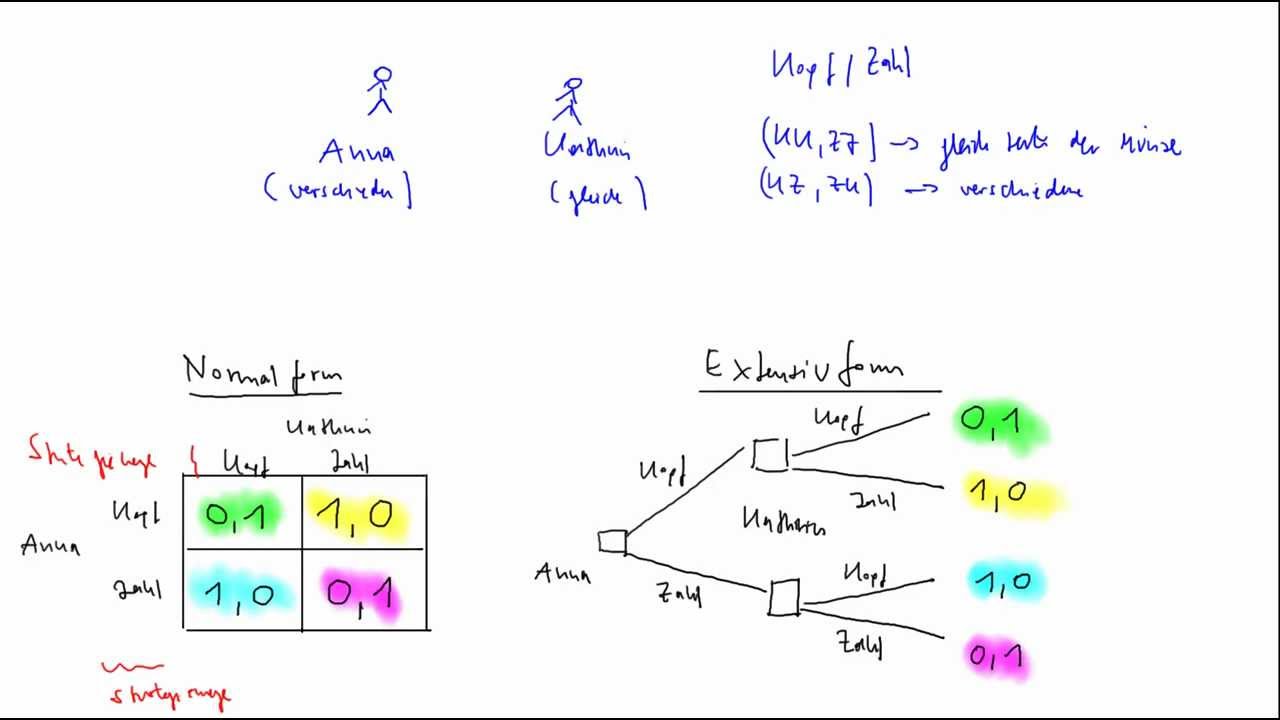 Kopf / Zahl
Anna
Kathrin
(verschieden)
(gleiche)
(KK, ZZ) → gleiche Seite der Münze
(KZ, ZK) → verschiedene
Normalform
Kathrin
Kopf
Zahl
Anna
Kopf
0,1
1,0
Zahl
1,0
0,1
Extensivform
Anna
Kopf
Zahl
Kathrin
Kopf
0,1
Zahl
1,0
Kopf
1,0
Zahl
0,1